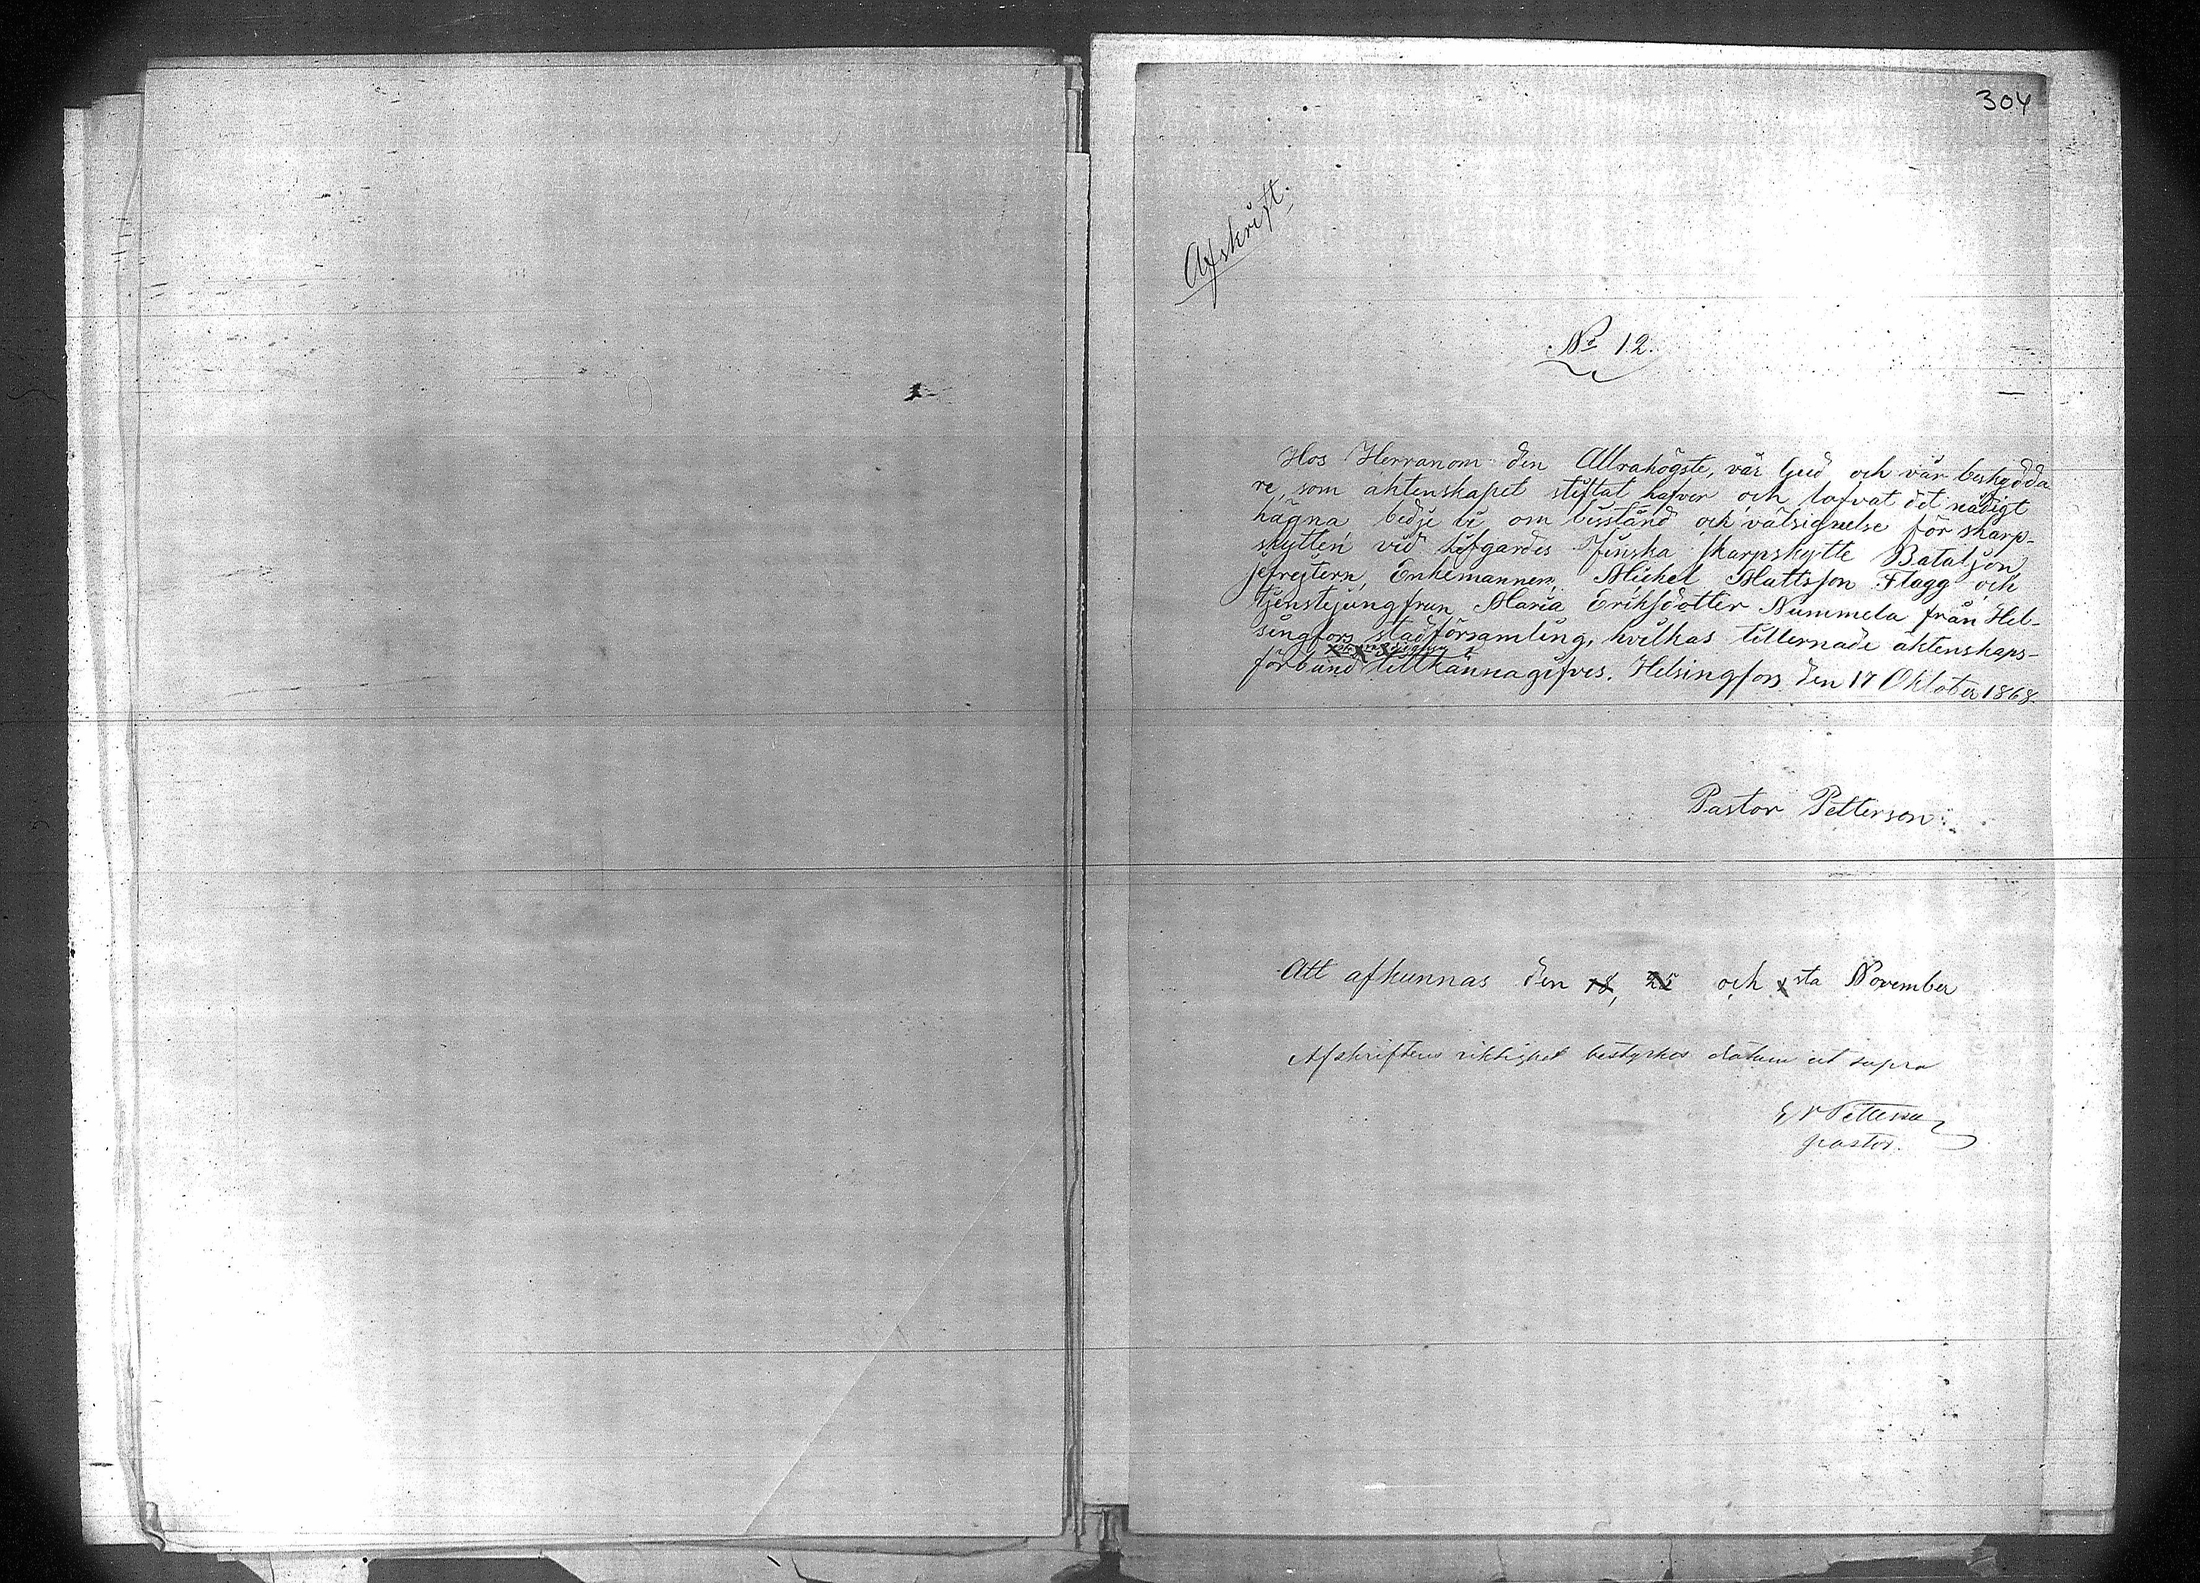 304
Afskrift.
No 12.
Hos Herranom den Allrahögste, vår Gud och vår beskydda
re, som äktenskapet stiftat hafver och lofvat det nådigt
hägna bedje vi om bisstånd och välsignelse för skarp-
skytten vid Lifgardes Finska skarpskytte Bataljon,
jefrejtern, Enkemannen, Michel Mattsson Flagg och
tjenstejungfrun Maria Eriksdotter Nummela från Hel-
singfors stadförsamling, hvilkas tillernade äktenskaps-
förbund tillkännagifves. Helsingfors den 17 Oktober 1868.
Pastor Petterson.
Att afkunnas den 18, 25 och 1 sta November
Afskriftens riktighet bestyrkes datum ut supra
Petterson
pastor.